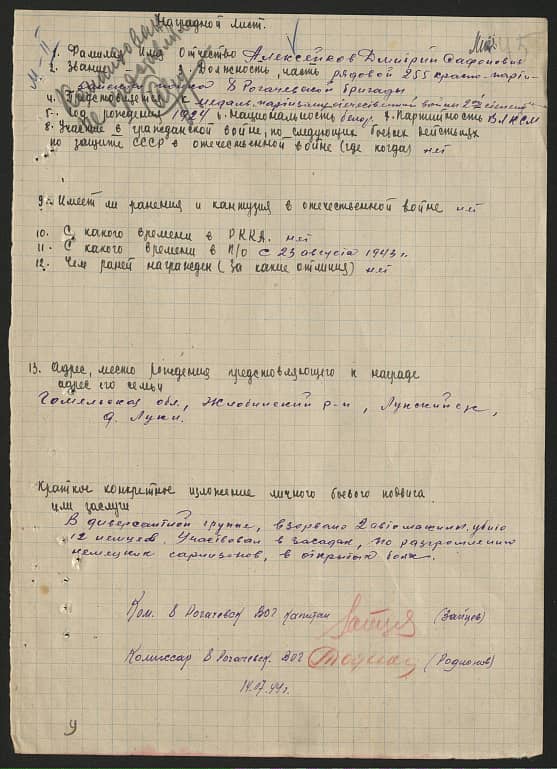 Наградной лист.
1. Фамилия Имя Отчество Алексейков Дмитрий Сафонович
2. Звание 3. Должность, часть рядовой 255 красно-парти-
занского полка 8 Рогачевской бригады
4. Представляется к медаль „партизану отечественной войны 2й степени"
5. Год рождения 1924 6. Национальность белор. 7. Партийность ВЛКСМ
8. Участие в гражданской войне, по следующих боевых действиях
по защите СССР в отечественной войне (где когда) нет
9. Имеет ли ранения и контузия в отечественной войне нет
10. С какого времени в РККА. нет
11. С какого времени в п/о с 23 августа 1943 г.
12. Чем раней награжден (За какие отличия) нет
13. Адрес, место рождения предстовляющего к награде
адрес его семьи
Гомельская обл., Жлобинский р-н, Лукский с/с,
д. Луки.
Краткое конкретное изложение личного боевого подвига
или заслуги
В диверсантной группе, взорвано 2 автомашины, убито
12 немцев. Участвовал в засадах, по разгромлению
немецких гарнизонов, в открытых боях.
Ком. 8 Рогачевск ВОГ капитан Зайцев (Зайцев)
Комиссар 8 Рогачевск. ВОГ Родионов (Родионов)
14.07.44г.